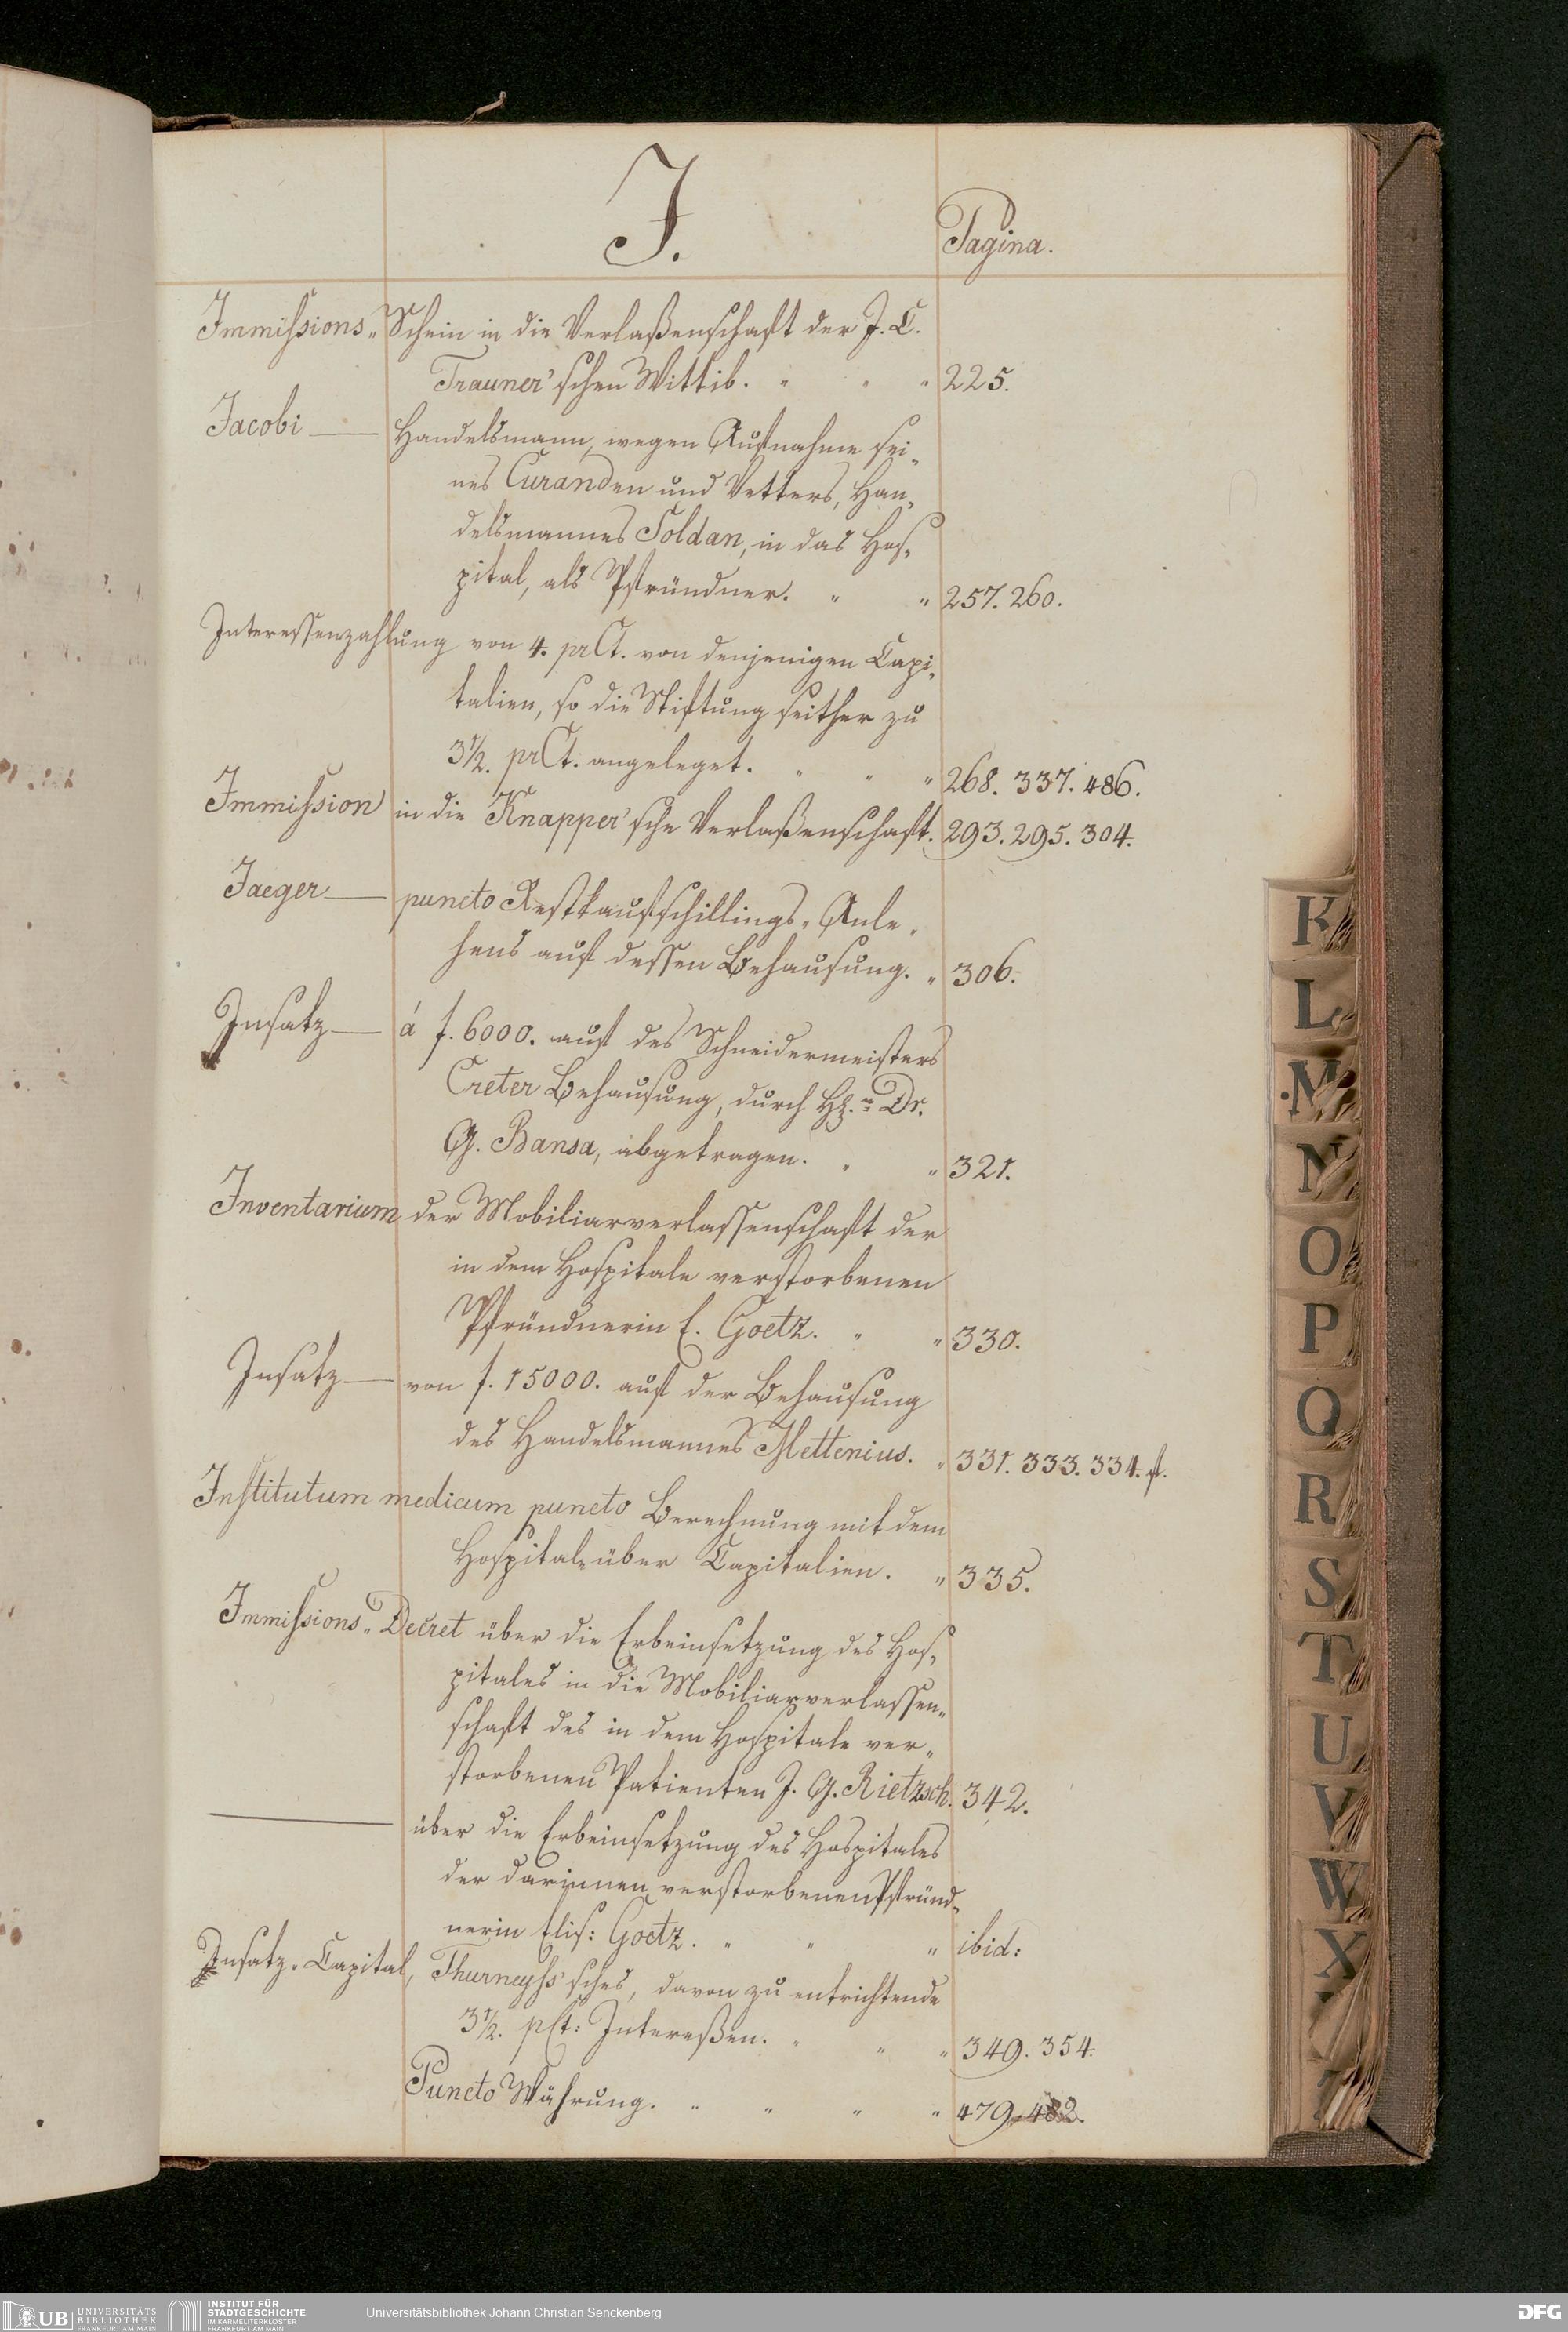 J.
Pagina.
Immissions-Schein in die Verlaßenschaft der J. C.
Trauner'schen Wittib. " " " 225.
Jacobi — Handelsmann, wegen Aufnahme sei-
nes Curanden und Vetters, Han-
delsmannes Soldan, in das Hos-
pital, als Pfründner. " " 257. 260.
Interessenzahlung von 4. prCt. von denjenigen Capi-
talien, so die Stiftung seither zu
3½. prCt. angeleget. " " " 268. 337. 486.
Immission in die Knapper'sche Verlaßenschaft. 293. 295. 304.
Jaeger — puncto Restkaufschillings-Anle-
hens auf dessen Behausung. " 306.
Insatz — á f. 6000. auf des Schneidermeisters
Creter Behausung, durch Dr.
G. Bansa, abgetragen. " " 321.
Inventarium der Mobiliarverlassenschaft der
in dem Hospitale verstorbenen
Pfründnerin E. Goetz. " " 330.
Insatz — von f. 15000. auf der Behausung
des Handelsmannes Mettenius. " 331. 333. 334. f.
Institutum medicum puncto Berechnung mit dem
Hospitale über Capitalien. " 335.
Immissions-Decret über die Erbeinsetzung des Hos-
pitales in die Mobiliarverlassen-
schaft des in dem Hospitale ver-
storbenen Patienten J. G. Rietzsch. 342.
— über die Erbeinsetzung des Hospitales
der darinnen verstorbenen Pfründ-
nerin Elis: Goetz. " " " ibid:
Insatz-Capital, Thurneyss'sches, davon zu entrichtende
3½. pCt: Intereßen. " " " 349. 354.
Puncto Währung. " " " " 479. 482.
K
L
M
N
O
P
Q
R
S
T
U
V
W
X
UB UNIVERSITÄTS
BIBLIOTHEK
FRANKFURT AM MAIN
INSTITUT FÜR
STADTGESCHICHTE
IM KARMELITERKLOSTER
FRANKFURT AM MAIN
Universitätsbibliothek Johann Christian Senckenberg
DFG